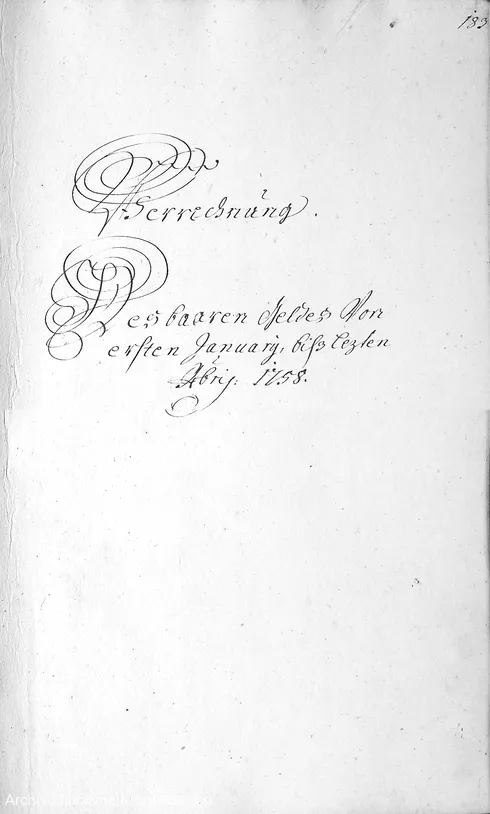 133
Verrechnung.
Des baaren Geldes Von
ersten January, biss lezten
1758.